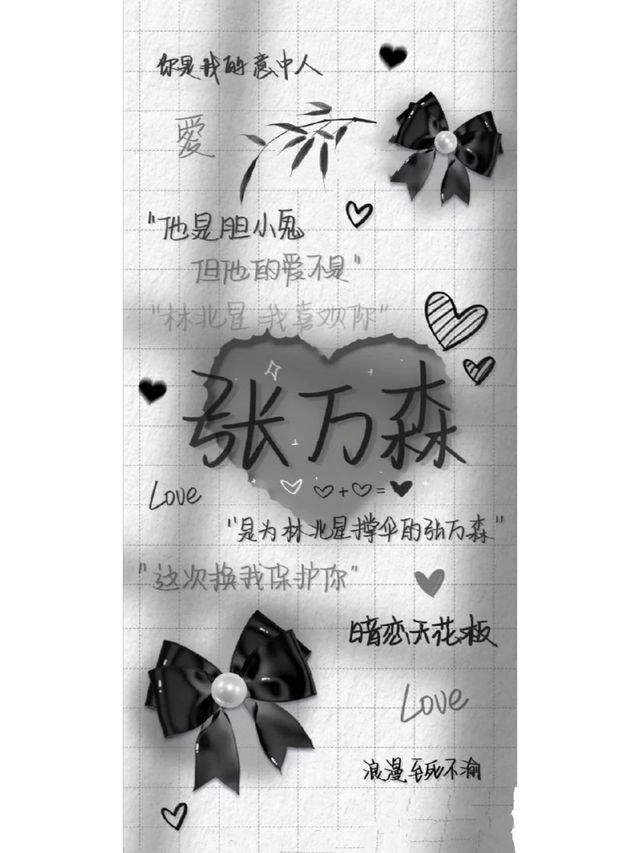 你是我的意中人
愛
"他是胆小鬼
但他的爱不是"
"林北星 我喜欢你"
张万森
+ =
Love
"是为林北星撑伞的张万森"
"这次换我保护你"
暗恋天花板
Love
浪漫至死不渝